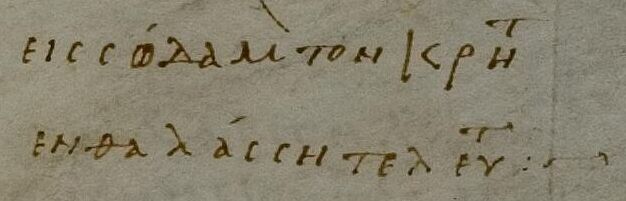 εισ σόδαμ τον κρητ
εν θαλάσσητελευτ :~